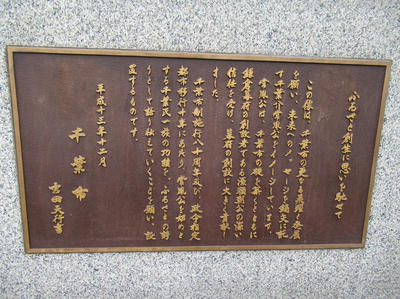 ふるさと創生に思いを馳せて
この像は、千葉市の更なる飛躍と発展
を願い、未来へのメッセージを鏑矢に託
す千葉介常胤公をイメージしています。
常胤公は、千葉市の礎を築くとともに
鎌倉幕府の創設者である源頼朝公の深い
信任を受け、幕府の創設に大きく貢献し
ました。
千葉市制施行八十周年及び、政令指定
都市移行十周年にあたり、常胤公を始めと
する千葉氏一族の功績を、ふるさとの誇
りとして語り伝えていくことを願い、設
置するものです。
平成十三年十二月
千葉市